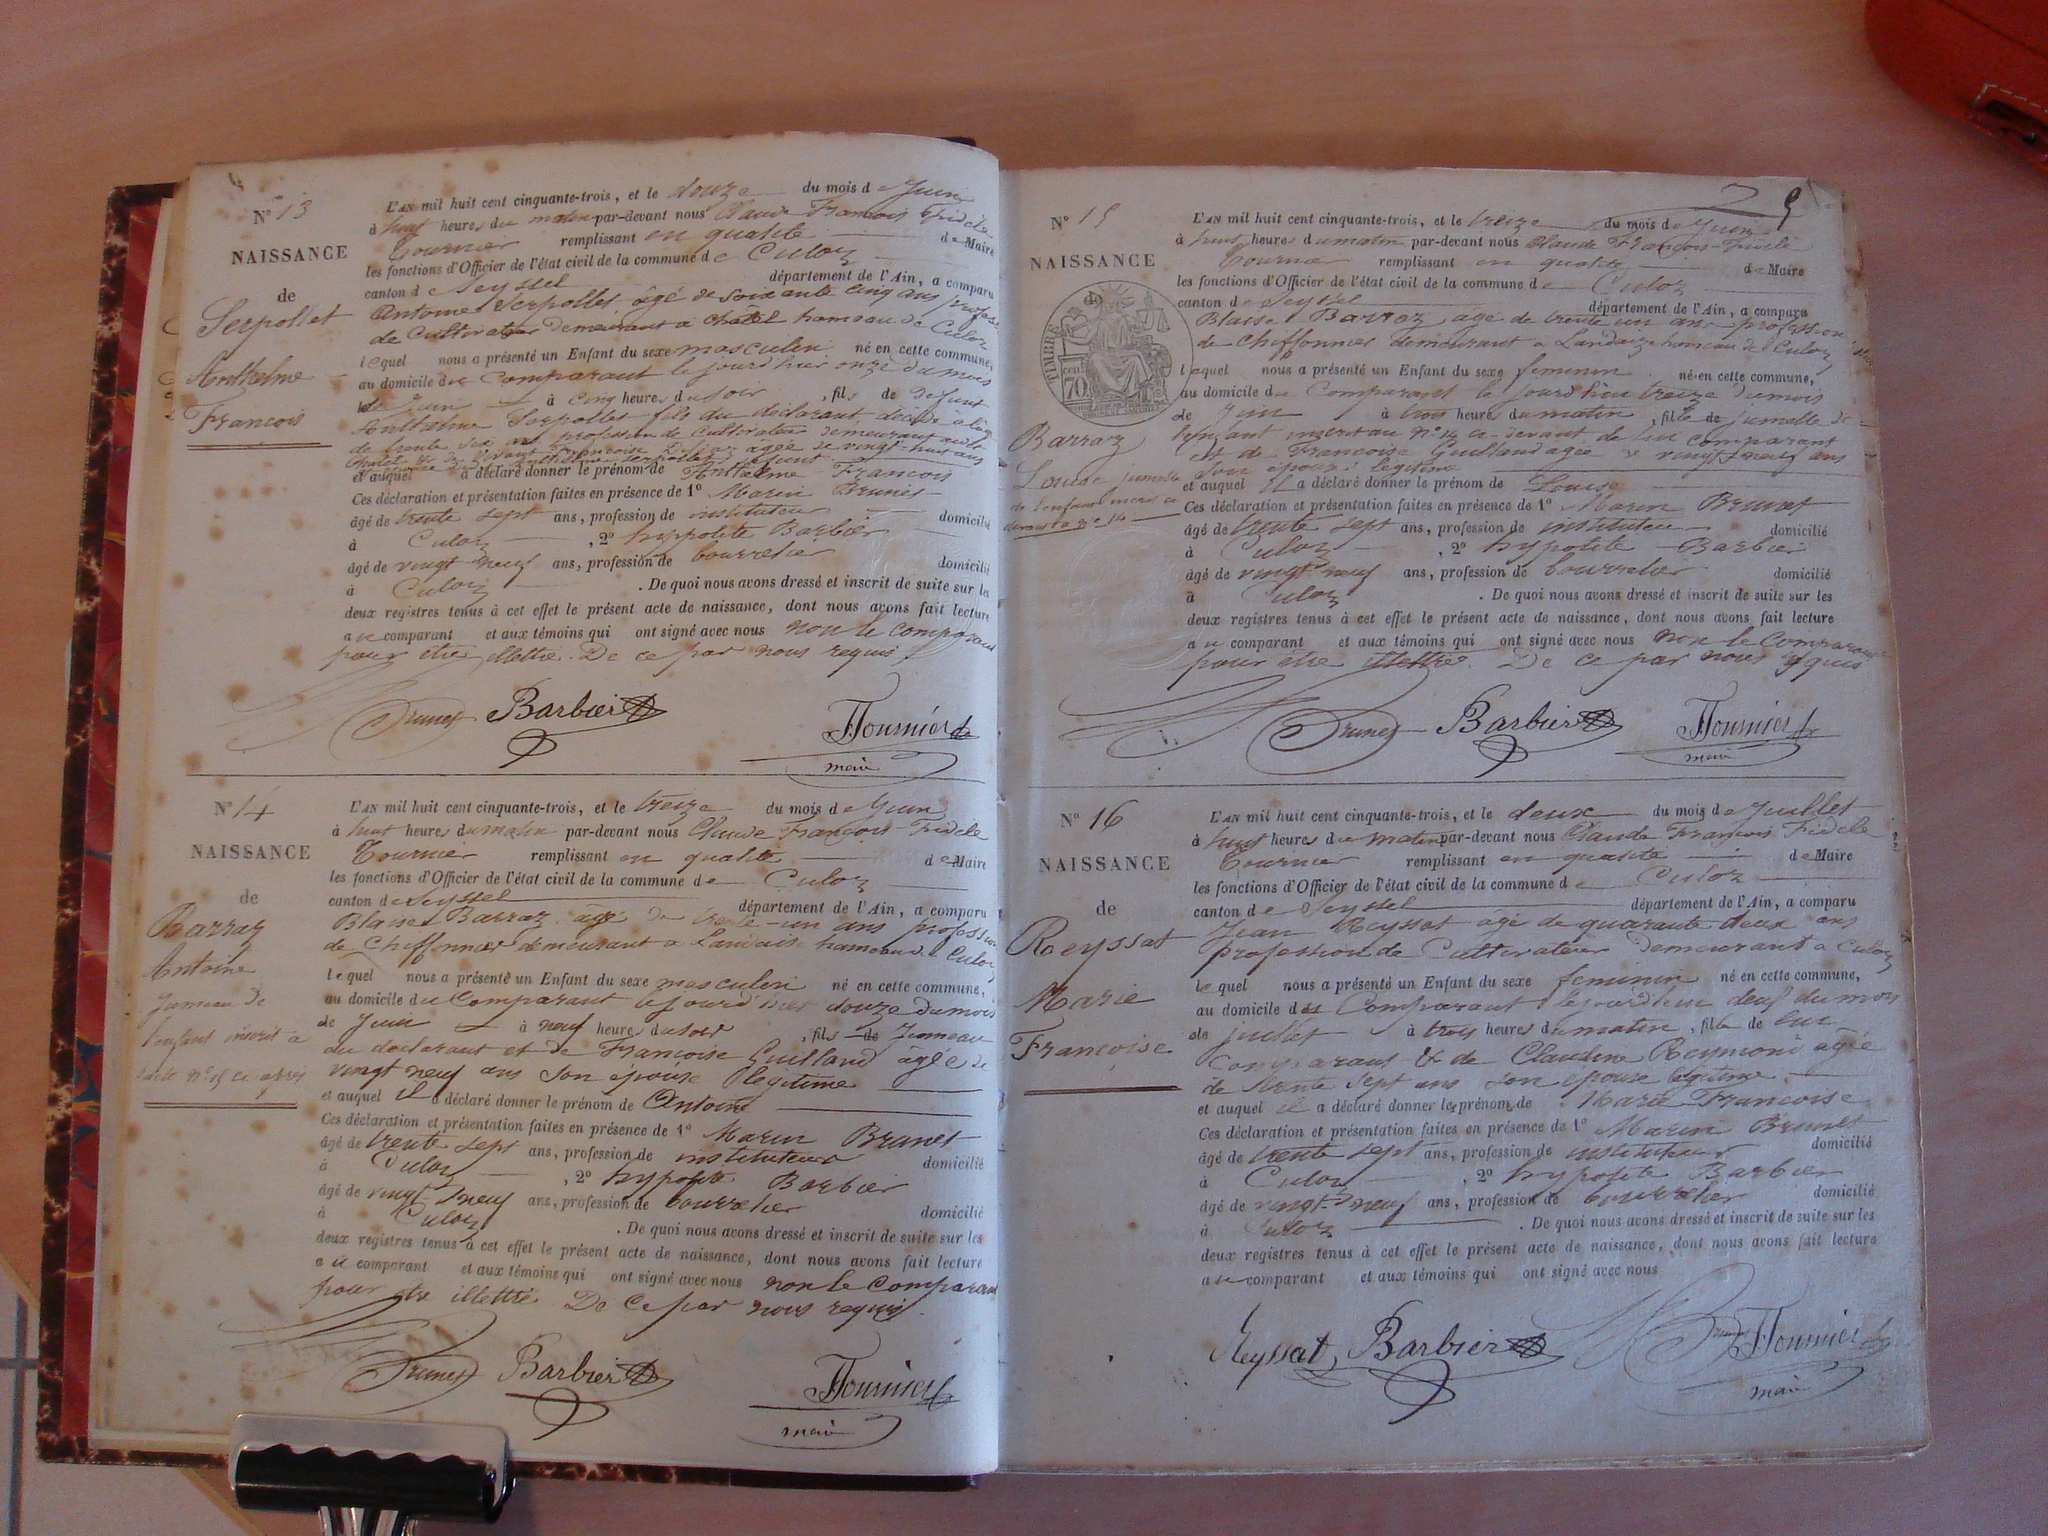 Nº 13
NAISSANCE
de
Serpollet
Anthelme
François
L'AN mil huit cent cinquante-trois, et le douze du mois de Juin
à huit heures du matin par-devant nous Claude François Fidèle
Tournier remplissant en qualité de Maire
les fonctions d'Officier de l'état civil de la commune de Culoz
canton de Seyssel département de l'Ain, a comparu
Antoine Serpollet, âgé de soixante cinq ans profess
de Cultivateur demeurant à Châtel hameau de Culoz
lequel nous a présenté un Enfant du sexe masculin né en cette commune,
au domicile du Comparant le jourd'hier onze du mois
de Juin à cinq heures du soir, fils de défunt
Anthelme Serpollet fils du déclarant décédé à l'âge
de trente six ans profession de Cultivateur demeurant audit
Châtel et de Françoise âgée de vingt-huit ans
et auquel a déclaré donner le prénom de Anthelme François
Ces déclaration et présentation faites en présence de 1º Marin Brunet
âgé de trente sept ans, profession de instituteur domicilié
à Culoz, 2º hypolite Barbier
âgé de vingt neuf ans, profession de bourrelier domicilié
à Culoz. De quoi nous avons dressé et inscrit de suite sur les
deux registres tenus à cet effet le présent acte de naissance, dont nous avons fait lecture
au comparant et aux témoins qui ont signé avec nous non le comparant
pour être illettré. De ce par nous requis
Brunet Barbier Tournier
maire
Nº 14
NAISSANCE
de
Barraz
Antoine
Jumeau de
l'enfant inscrit a
nº 15 ci après
L'AN mil huit cent cinquante-trois, et le treize du mois de Juin
à huit heures du matin par-devant nous Claude François Fidèle
Tournier remplissant en qualité de Maire
les fonctions d'Officier de l'état civil de la commune de Culoz
canton de Seyssel département de l'Ain, a comparu
Blaise Barraz âgé de trente-un ans profession
de Chiffonnier demeurant a Landaise hameau de Culoz
lequel nous a présenté un Enfant du sexe masculin né en cette commune,
au domicile du Comparant le jourd'hier douze du mois
de Juin à neuf heures du soir, fils de Jumeau
du déclarant et de Françoise Guilland âgée de
vingt neuf ans son épouse légitime
et auquel il a déclaré donner le prénom de Antoine
Ces déclaration et présentation faites en présence de 1º Marin Brunet
âgé de trente sept ans, profession de instituteur domicilié
à Culoz, 2º hypolite Barbier
âgé de vingt neuf ans, profession de bourrelier domicilié
à Culoz. De quoi nous avons dressé et inscrit de suite sur les
deux registres tenus à cet effet le présent acte de naissance, dont nous avons fait lecture
au comparant et aux témoins qui ont signé avec nous non le comparant
pour être illettré. De ce par nous requis.
Brunet Barbier Tournier
maire
9
Nº 15
NAISSANCE
de
TIMBRE
70 cent
Barraz
Louise jumelle
de l'enfant inscrit ci
devant a nº 14
L'AN mil huit cent cinquante-trois, et le treize du mois de Juin
à huit heures du matin par-devant nous Claude François-Fidèle
Tournier remplissant en qualité de Maire
les fonctions d'Officier de l'état civil de la commune de Culoz
canton de Seyssel département de l'Ain, a comparu
Blaise Barraz âgé de trente un ans profession
de Chiffonnier demeurant a Landaize hameau de Culoz
lequel nous a présenté un Enfant du sexe feminin né en cette commune,
au domicile du Comparant le jourd'hui treize du mois
de Juin à trois heures du matin, fille de jumelle de
l'enfant inscrit au nº 14 ci-devant de lui comparant
et de Françoise Guilland agée de vingt neuf ans
son épouse légitime
et auquel il a déclaré donner le prénom de Louise
Ces déclaration et présentation faites en présence de 1º Marin Brunet
âgé de trente sept ans, profession de instituteur domicilié
à Culoz, 2º hypolite Barbier
âgé de vingt neuf ans, profession de bourrelier domicilié
à Culoz. De quoi nous avons dressé et inscrit de suite sur les
deux registres tenus à cet effet le présent acte de naissance, dont nous avons fait lecture
au comparant et aux témoins qui ont signé avec nous non le Comparant
pour être illettré. De ce par nous requis
Brunet Barbier Tournier
maire
Nº 16
NAISSANCE
de
Reyssat
Marie
Françoise
L'AN mil huit cent cinquante-trois, et le deux du mois de Juillet
à huit heures du matin par-devant nous Claude François Fidèle
Tournier remplissant en qualité de Maire
les fonctions d'Officier de l'état civil de la commune de Culoz
canton de Seyssel département de l'Ain, a comparu
Jean Reyssat âgé de quarante deux ans
profession de Cultivateur demeurant a Culoz
lequel nous a présenté un Enfant du sexe feminin né en cette commune,
au domicile du Comparant le jourd'hui deux du mois
de juillet à trois heures du matin, fille de lui
Comparant & de Claudine Reymond agée
de trente sept ans son épouse légitime
et auquel il a déclaré donner le prénom de Marie Françoise
Ces déclaration et présentation faites en présence de 1º Marin Brunet
âgé de trente sept ans, profession de instituteur domicilié
à Culoz, 2º hypolite Barbier
âgé de vingt-neuf ans, profession de bourrelier domicilié
à Culoz. De quoi nous avons dressé et inscrit de suite sur les
deux registres tenus à cet effet le présent acte de naissance, dont nous avons fait lecture
au comparant et aux témoins qui ont signé avec nous
Reyssat, Barbier Brunet Tournier
maire